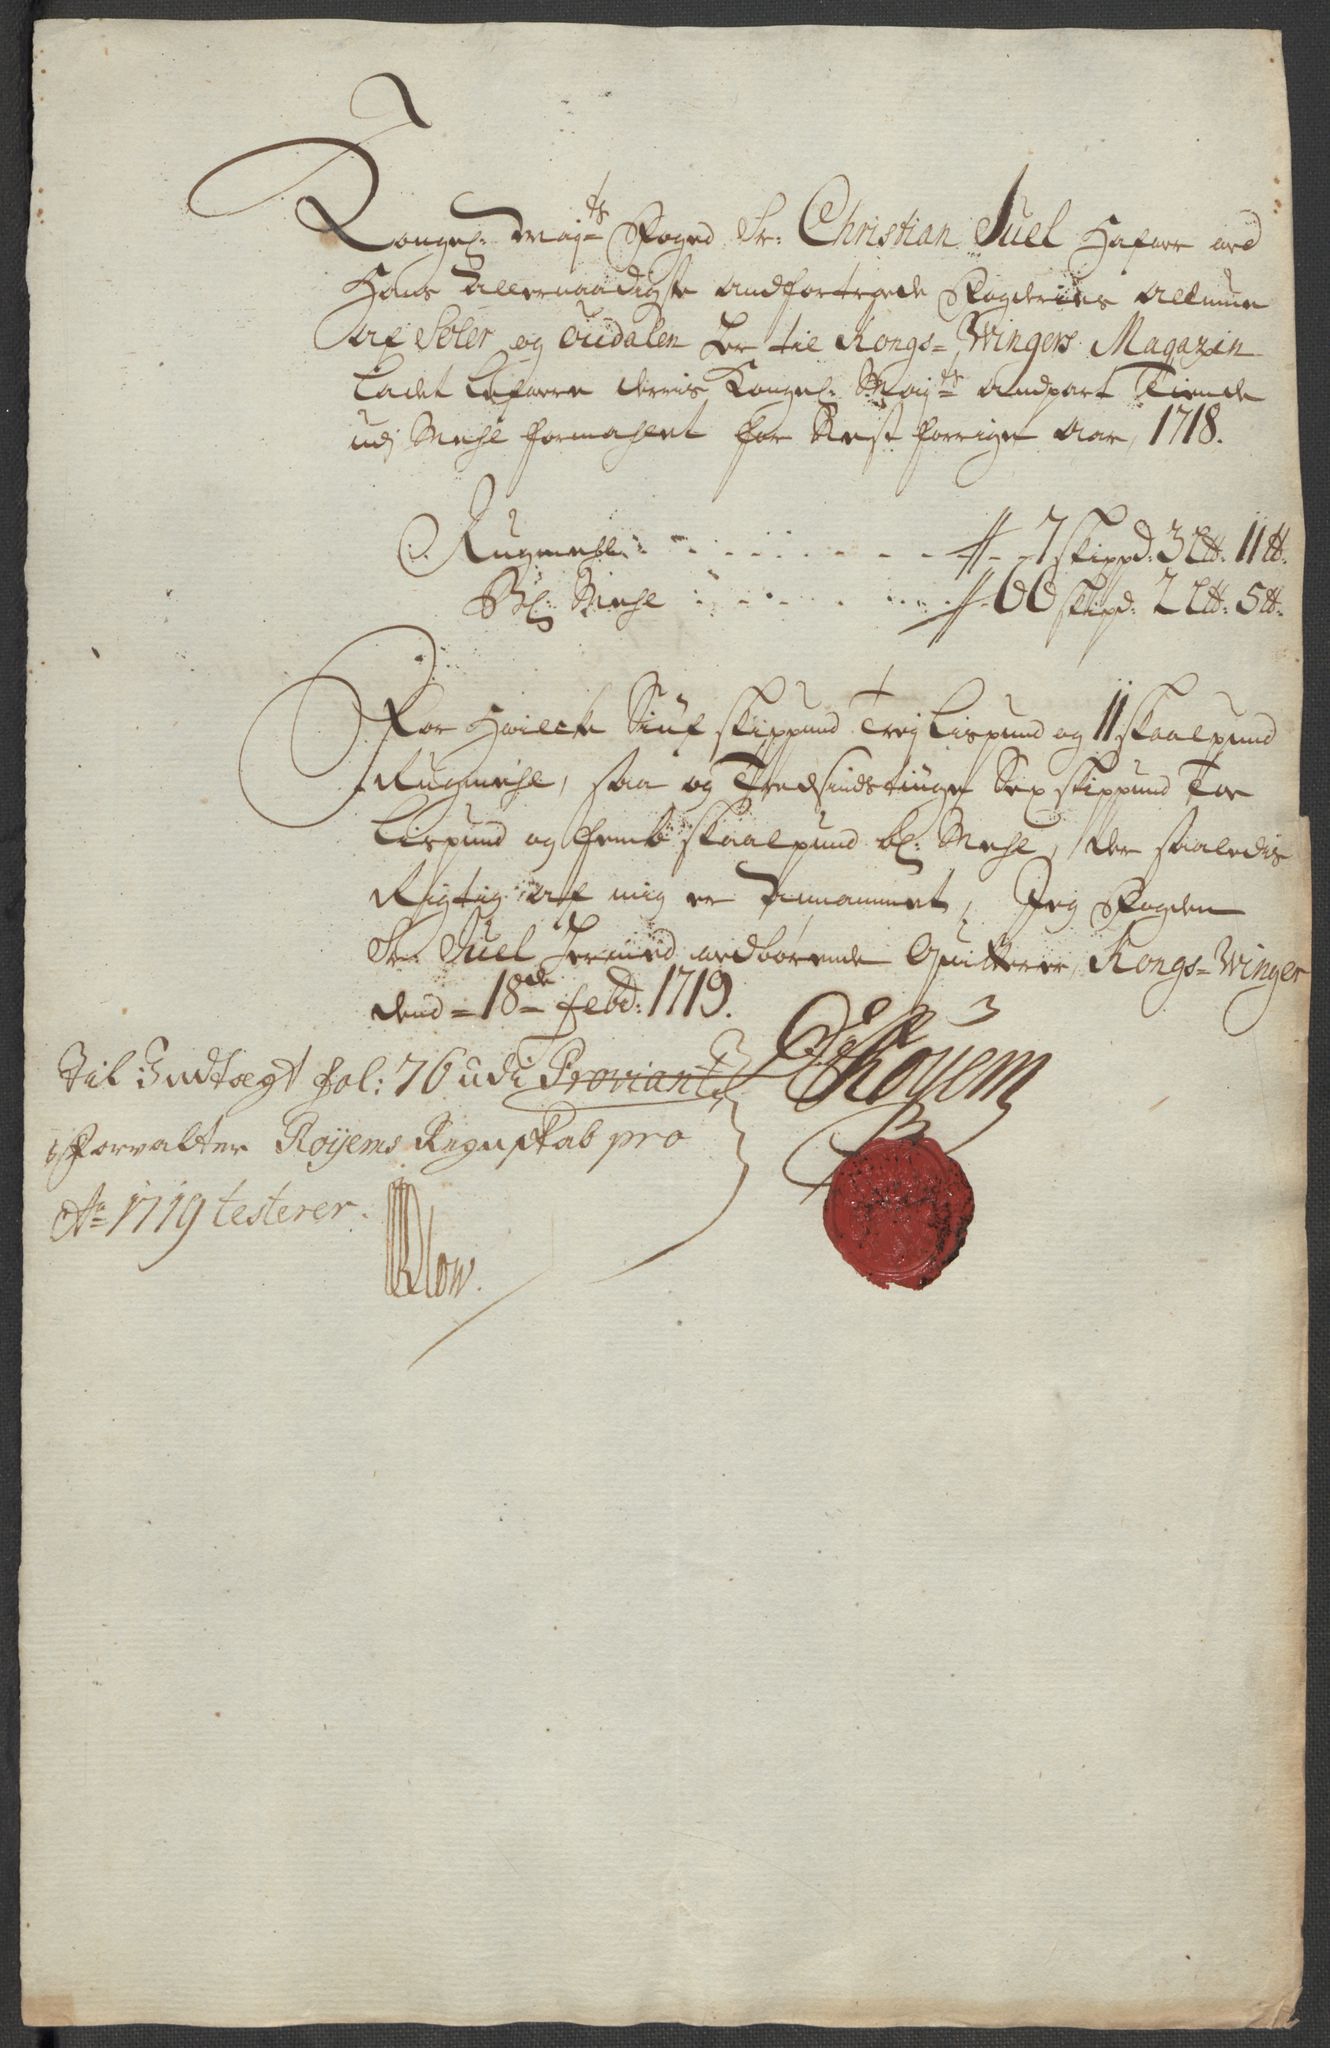 Kongel: Maj:ts Foged Sr: Christian Juel Hafwer ved
Hans Allernaadigste andfortroede Fogderies Allmue
Af Soler og Oudalen her til Kongs-Wingers Magazin
Ladet Lefwere derris Kongel: Maj:ts andpart Tiende
udj Mehl formahlet for Nest forrige Aar, 1718.
Rugmehl - - - - 7 skippd: 3 L℔: 11 ℔:
Bl: Mehl - - - - 66 skipd: 2 L℔: 5 ℔:
For Hvilcke Siuf skippund Trej Lispund og 11 skaalpund
Rugmehl, saa og Tredsindstiuge Sex skippund Toe
Lispund og femb skaalpund bl: Mehl, der saaledis
Rigtig af mig er Annammet, Jeg Fogden
Sr: Juel hermed vedbørende Quitterer, Kongs-Winger
dend 18de Febr: 1719.
Røyem
Til Indtægt fol: 76 udi Proviant
Forvalter Røyems Regnskab pro
Ao 1719 testerer.